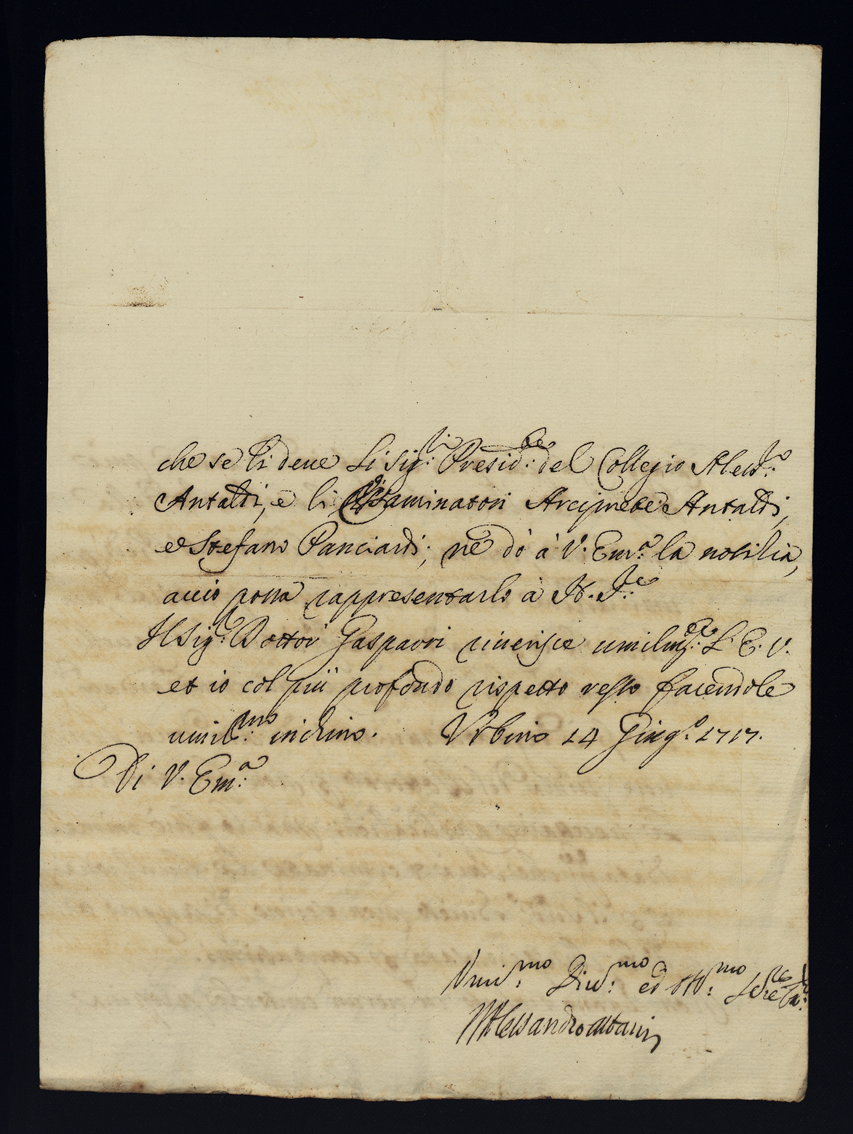 che se li deve Li Sig:ri Presid:te del Collegio Aless:o
Antaldi, e li Esaminatori Arciprete Antaldi,
e Stefano Panciardi, ne dò à V. Em:a la notitia,
acciò possa rappresentarlo à N. S:re
Il Sig:r Dottor Gasparri riverisce umilm:te L'E. V.
et io col più profondo rispetto resto facendole
umil:mo inchino. Urbino 14 Giug:o 1717.
Di V. Em:a
Umil:mo Div:mo ed Obb:mo
Alessandro Albani